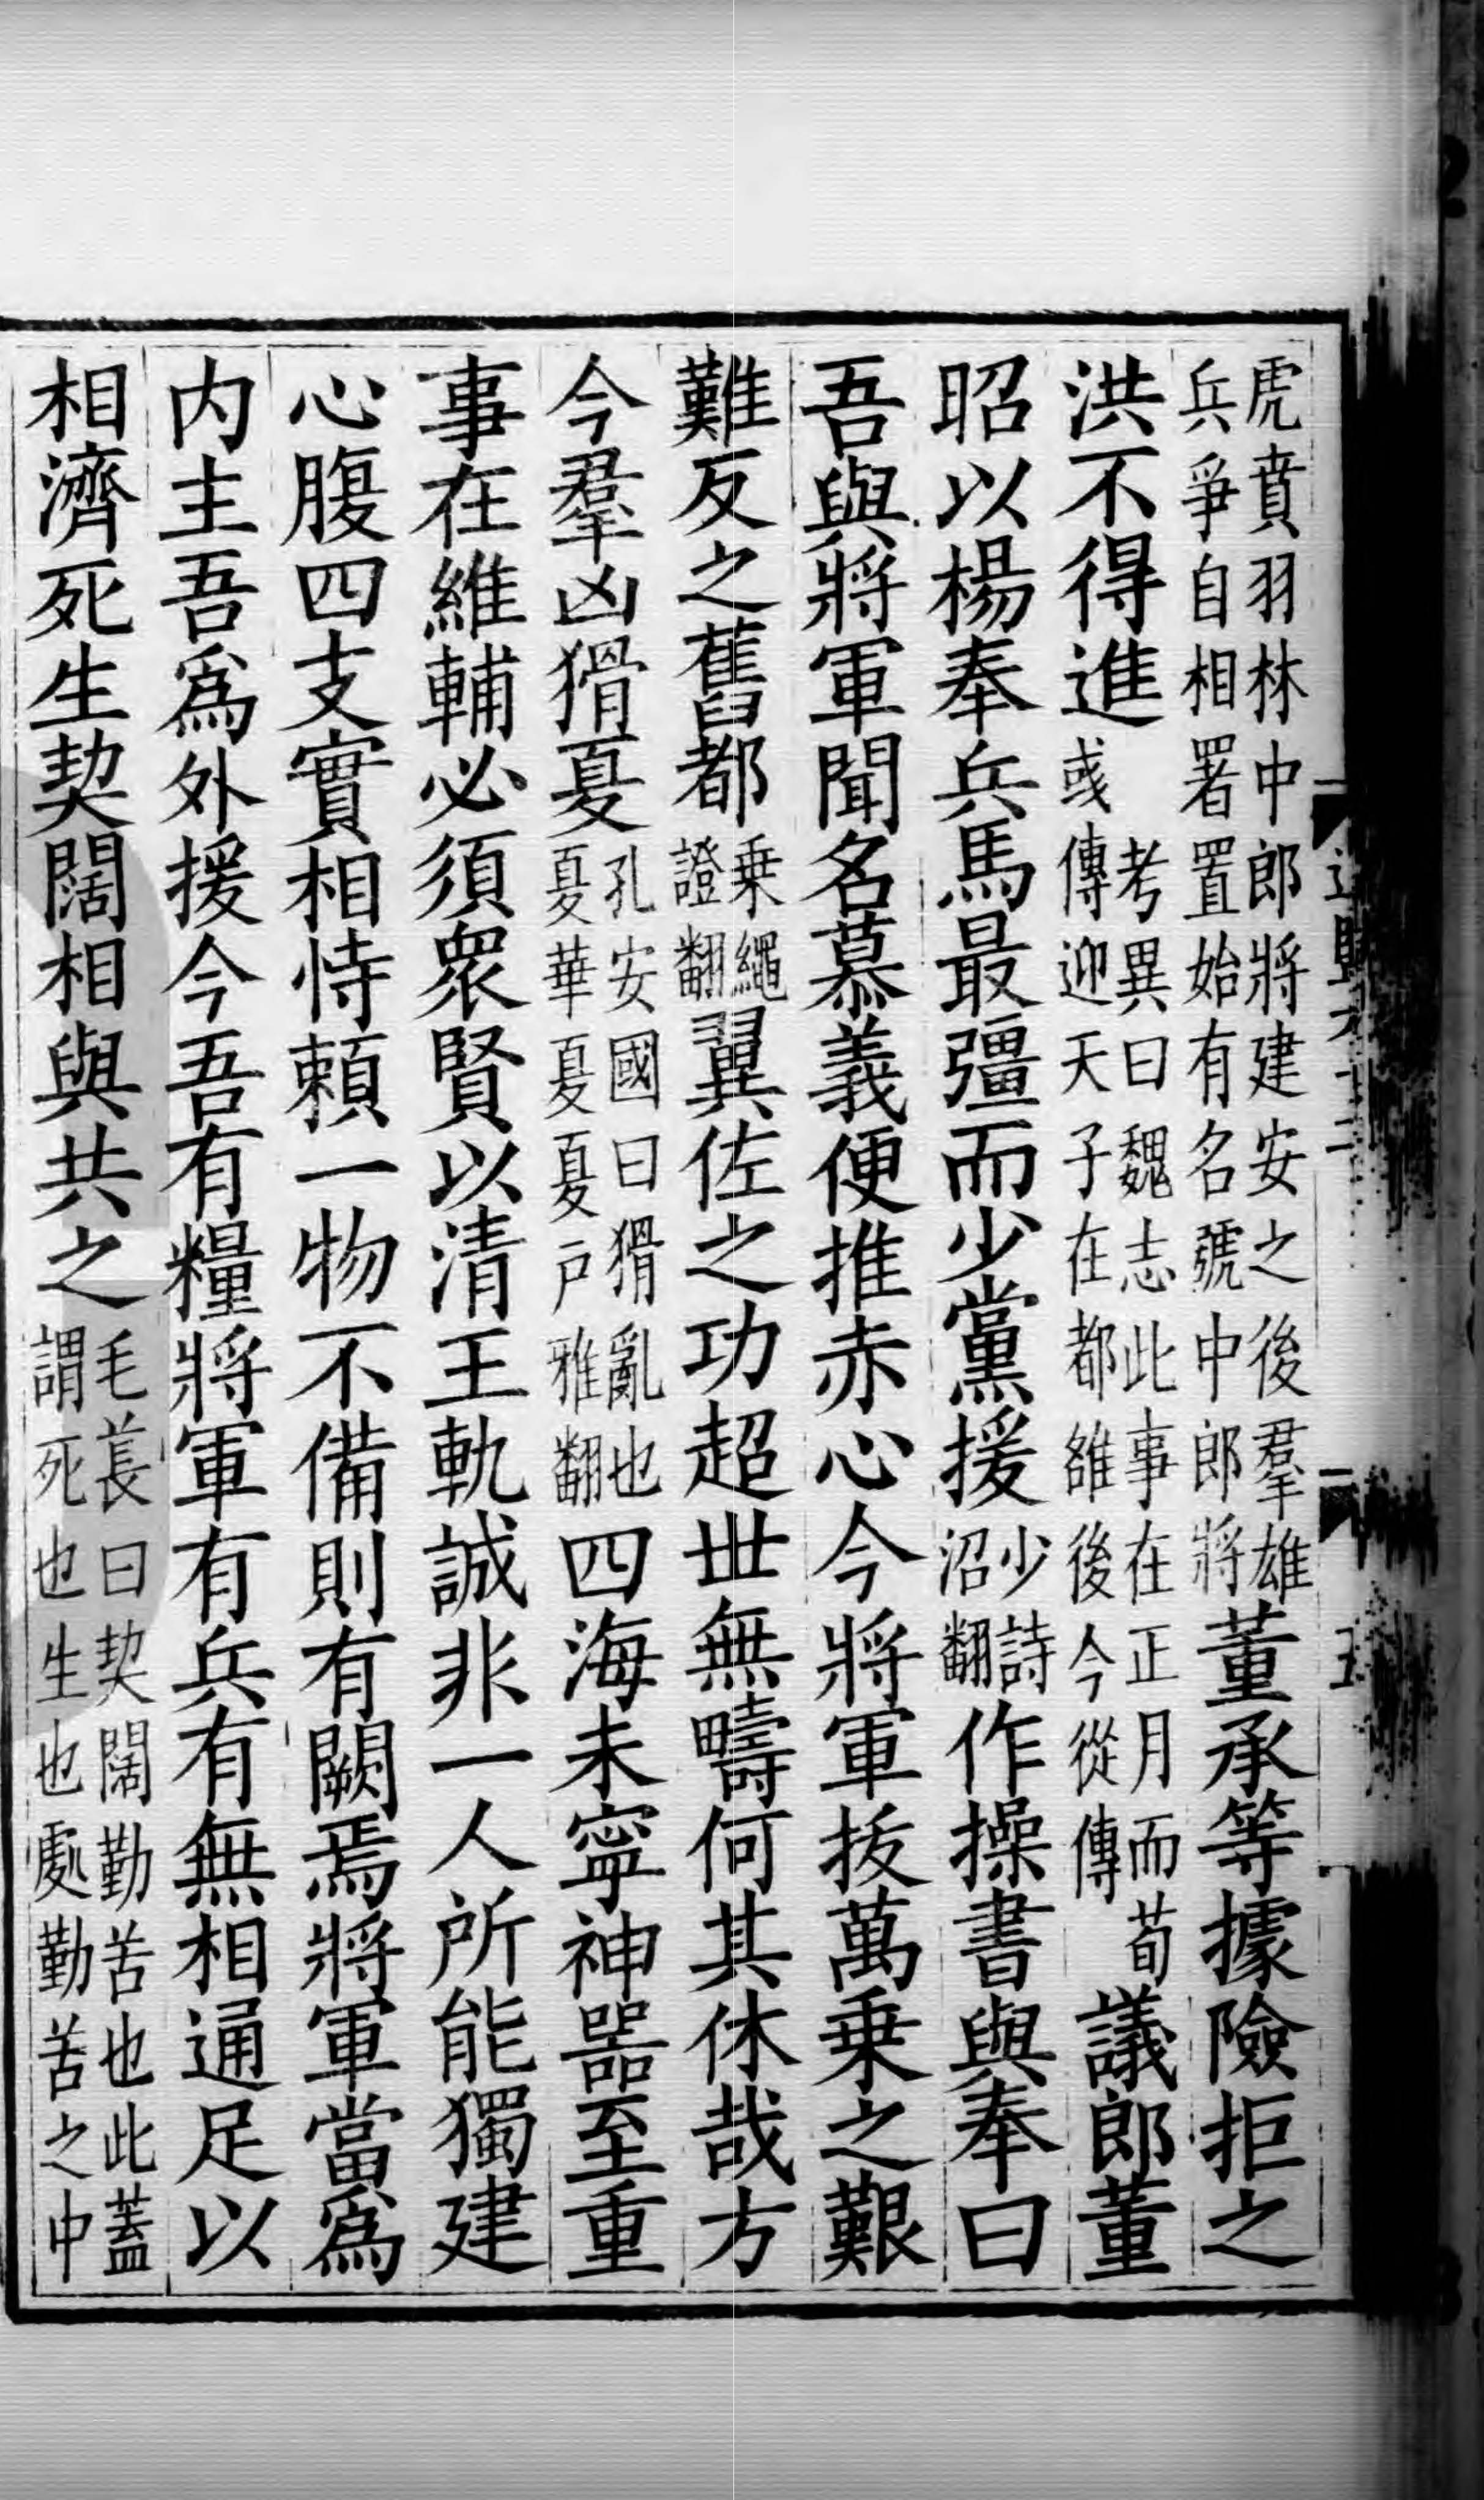 虎賁羽林中郎將建安之後羣雄兵爭自相署置始有名號中郎將董承等據險拒之
洪不得進考異曰魏志此事在正月而荀彧傳迎天子在都雒後今從傳議郎董
昭以楊奉兵馬最彊而少黨援少詩沼翻作操書與奉曰
吾與將軍聞名慕義便推赤心今將軍拔萬乗之艱
難反之舊都乗繩證翻翼佐之功超世無疇何其休哉方
今羣凶猾夏孔安國曰猾亂也夏華夏夏戶雅翻四海未寧神器至重
事在維輔必須衆賢以清王軌誠非一人所能獨建
心腹四支實相恃頼一物不備則有闕焉將軍當爲
内主吾爲外援今吾有糧將軍有兵有無相通足以
相濟死生契闊相與共之毛萇曰契闊勤苦也此蓋謂死也生也處勤苦之中